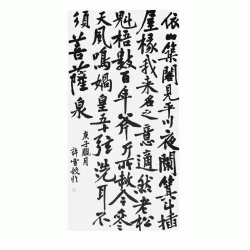 依山築閣見平川夜闌箕斗插
屋椽我来名之意適然老松
魁梧數百年斧斤所赦今參
天風鳴媧皇五十弦洗耳不
須菩薩泉
庚子臘月
許雪